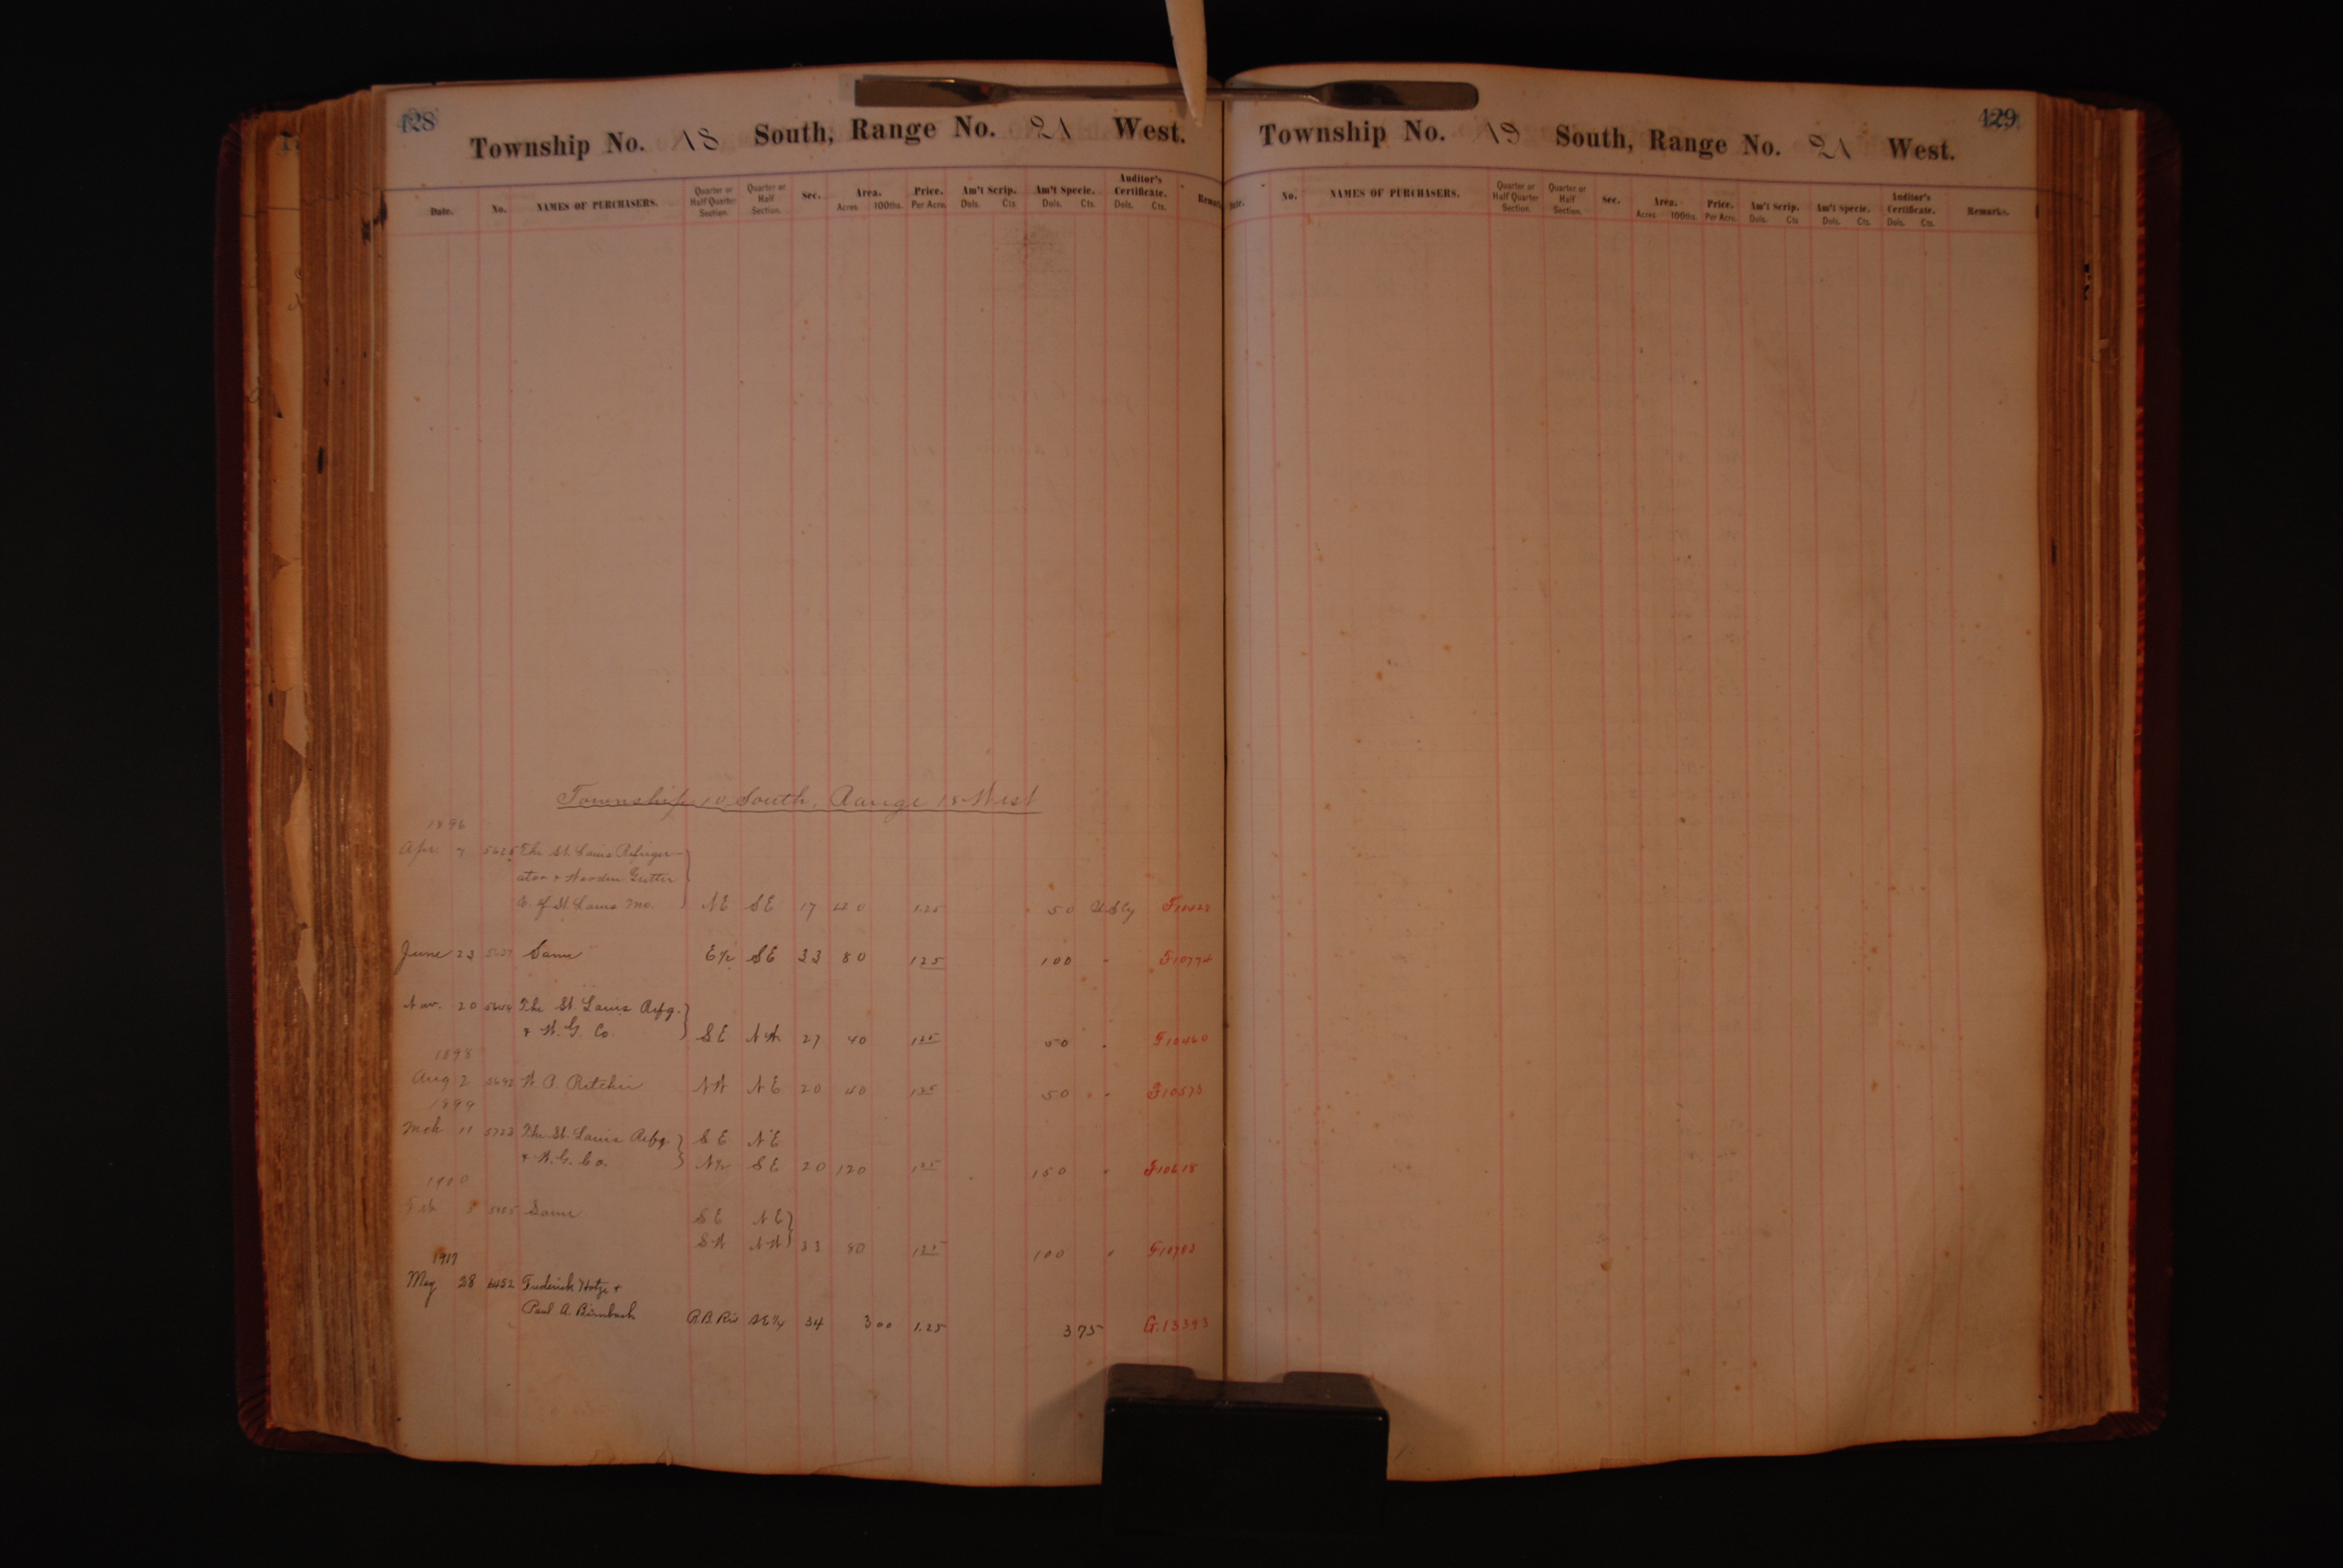 428
Township No. 18 South, Range No. 21 West.
Date. No. NAMES OF PURCHASERS. Quarter or Half Quarter Section. Quarter or Half Section. Sec. Area. Acres 100ths. Price. Per Acre. Am't Scrip. Dols. Cts. Am't Specie. Dols. Cts. Auditor's Certificate. Dols. Cts.
Township 10 South, Range 18 West
1896
Apr. 7 5625 The St. Louis Refriger-
ator & Wooden Gutter
Co. of St. Louis Mo. NE SE 17 40 1.25 50
June 23 5637 Same E½ SE 33 80 1.25 100 "
Nov. 20 The St. Louis Refg.
& W. G. Co. SE NW 27 40 1.25 50 " F10460
1898
Aug 2 5692 W. P. Ritchie NW NE 20 40 1.25 50 " F10573
1899
Mch 11 5723 The St. Louis Refg. SE NE
& W. G. Co. N½ SE 20 120 1.25 150 " F10618
1900
Feb Same SE NE
SW NW 33 80 1.25 100 " F10703
1917
May 28 6452 Frederick Hotze &
Paul A. Birnbach SE¼ 34 300 1.25 375 G.13393
429
Township No. 19 South, Range No. 21 West.
No. NAMES OF PURCHASERS. Quarter or Half Quarter Section. Quarter or Half Section. Sec. Area. Acres 100ths. Price. Per Acre. Am't Scrip. Dols. Cts Am't Specie. Dols. Cts. Auditor's Certificate. Dols. Cts. Remarks.